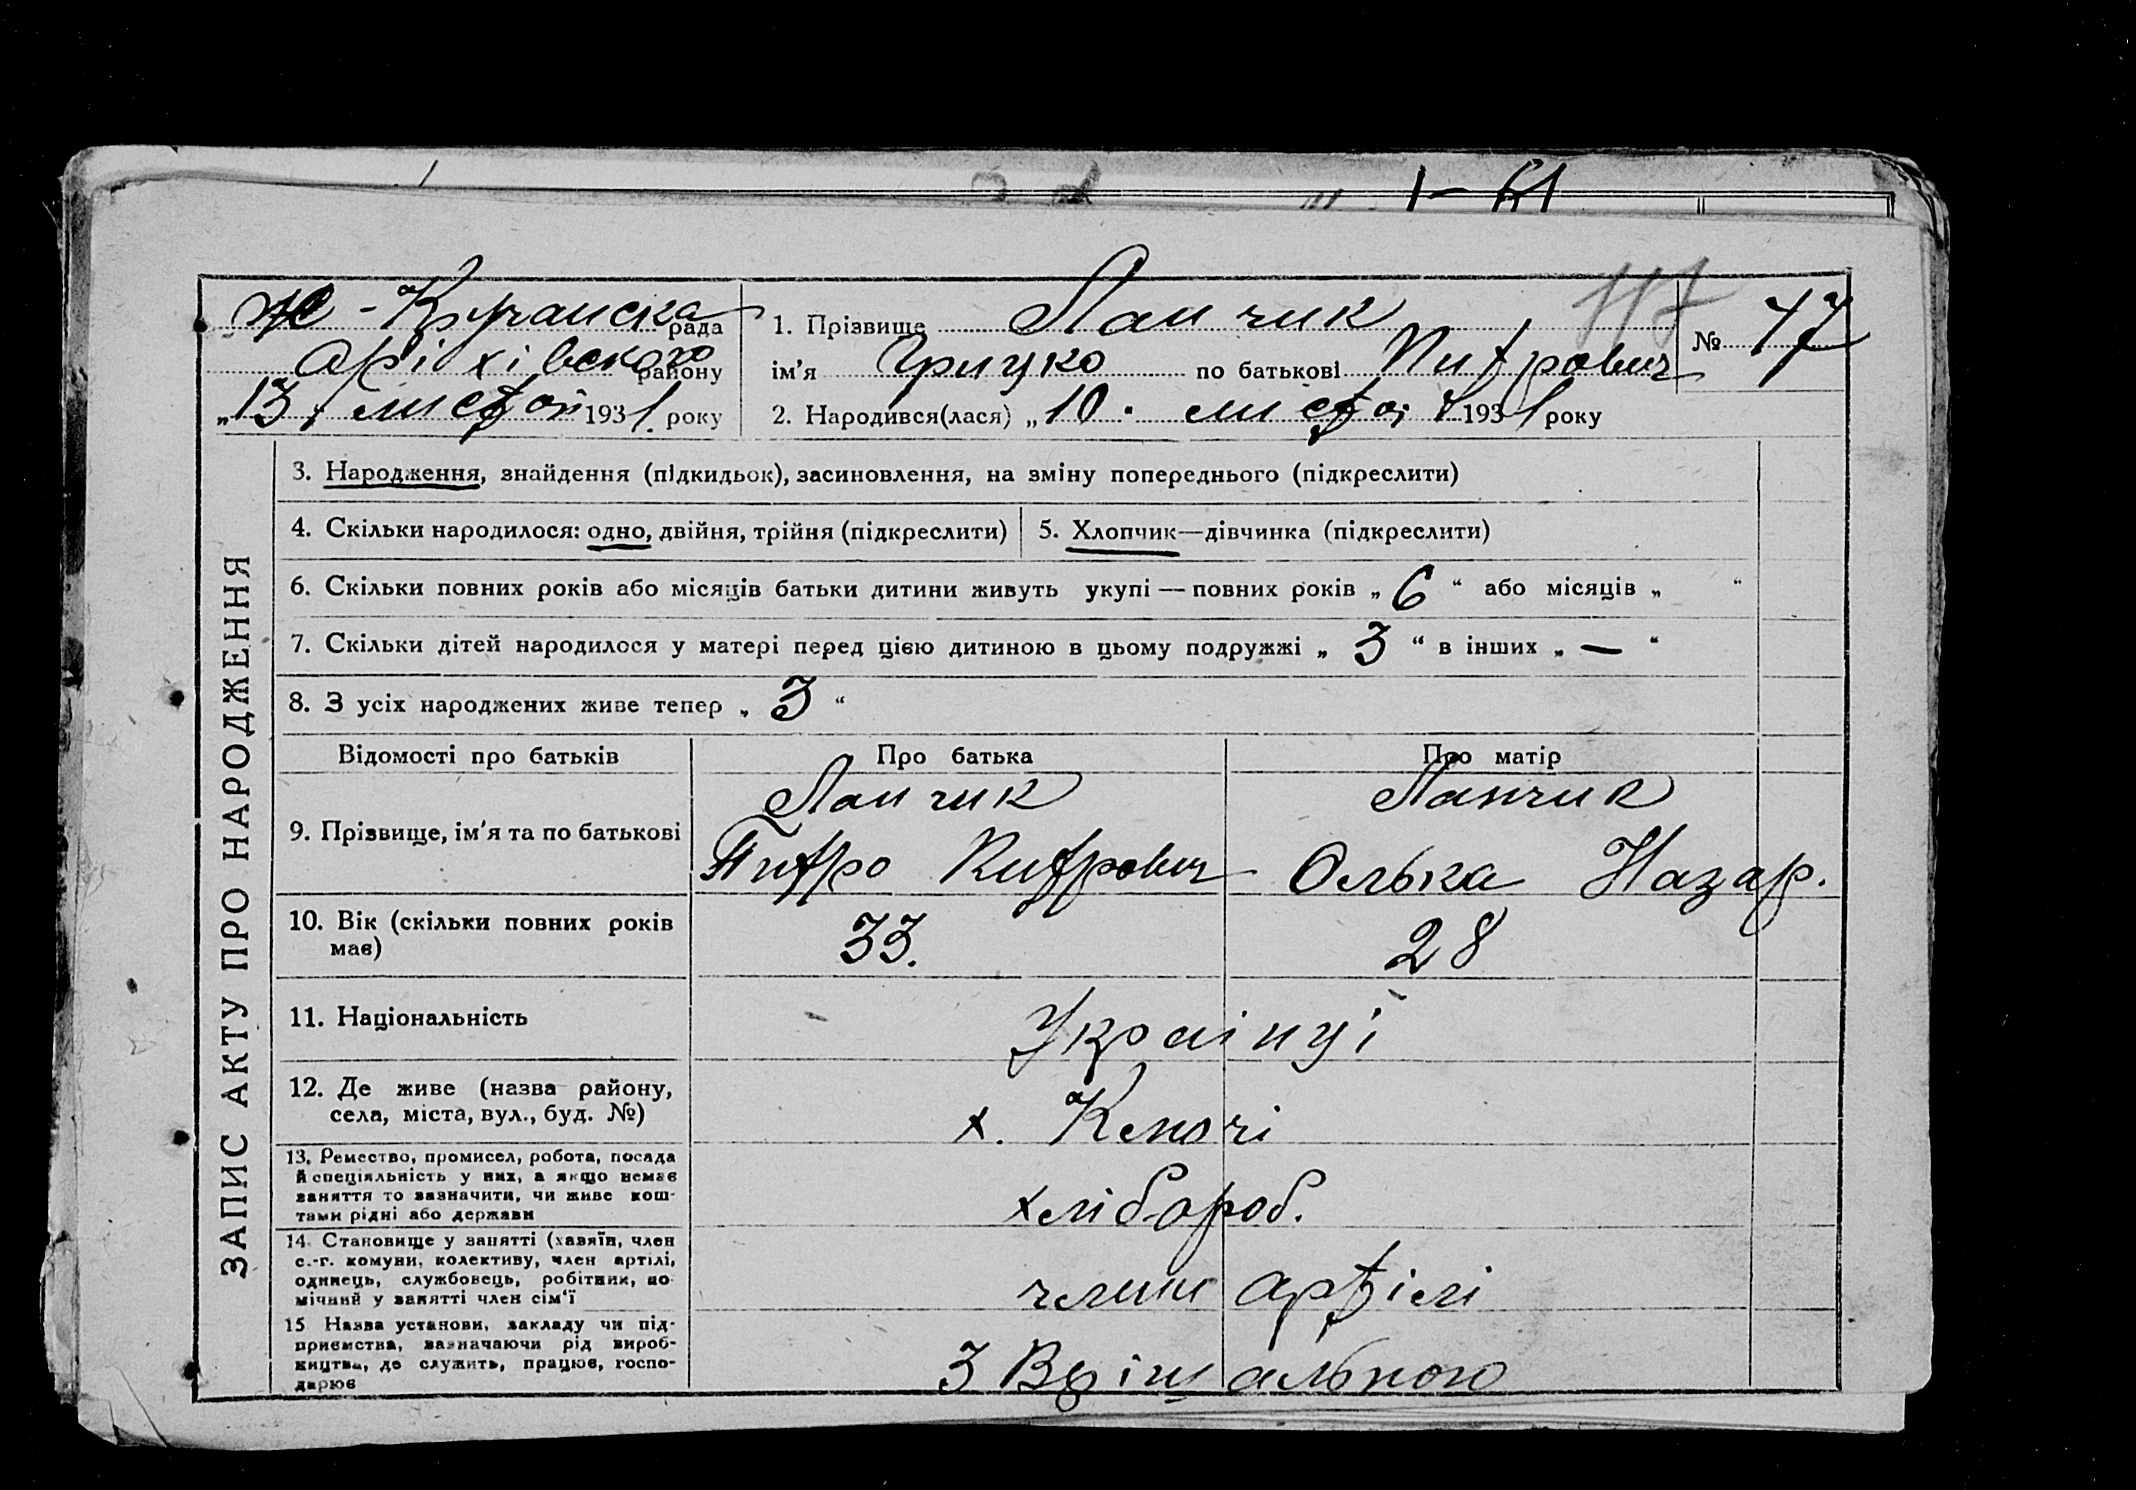 рада
Аріхівского району
"13" листоп 1931 року
1. Прізвище Панчик
імʼя Грицко по батькові Питрович
№ 47
117
2. Народився(лася) „10" листоп 1931 року
ЗАПИС АКТУ ПРО НАРОДЖЕННЯ
3. Народження, знайдення (підкидьок), засиновлення, на зміну попереднього (підкреслити)
4. Скільки народилося: одно, двійня, трійня (підкреслити)
5. Хлопчик—дівчинка (підкреслити)
6. Скільки повних років або місяців батьки дитини живуть укупі — повних років „6" або місяців „ "
7. Скільки дітей народилося у матері перед цією дитиною в цьому подружжі „3" в інших „—"
8. З усіх народжених живе тепер „3"
Відомості про батьків Про батька Про матір
9. Прізвище, ім'я та по батькові
Панчик
Питро Питрович
Панчик
Олька Назар.
10. Вік (скільки повних років
має)
33. 28
11. Національність Українці
12. Де живе (назва району,
села, міста, вул., буд. №)
х.
13. Ремество, промисел, робота, посада
й спеціяльність у них, а якщо немає
заняття то зазначити, чи живе кош-
тами рідні або держави
хлібороб.
14. Становище у занятті (хазяїн, член
с.-г. комуни, колективу, член артілі,
одинець, службовець, робітник, по-
мічний у занятті член сім'ї
члини артілі
15 Назва установи, закладу чи під-
приємства, вазначаючи рід вироб-
ництва, де служить, працює, госпо-
дарює